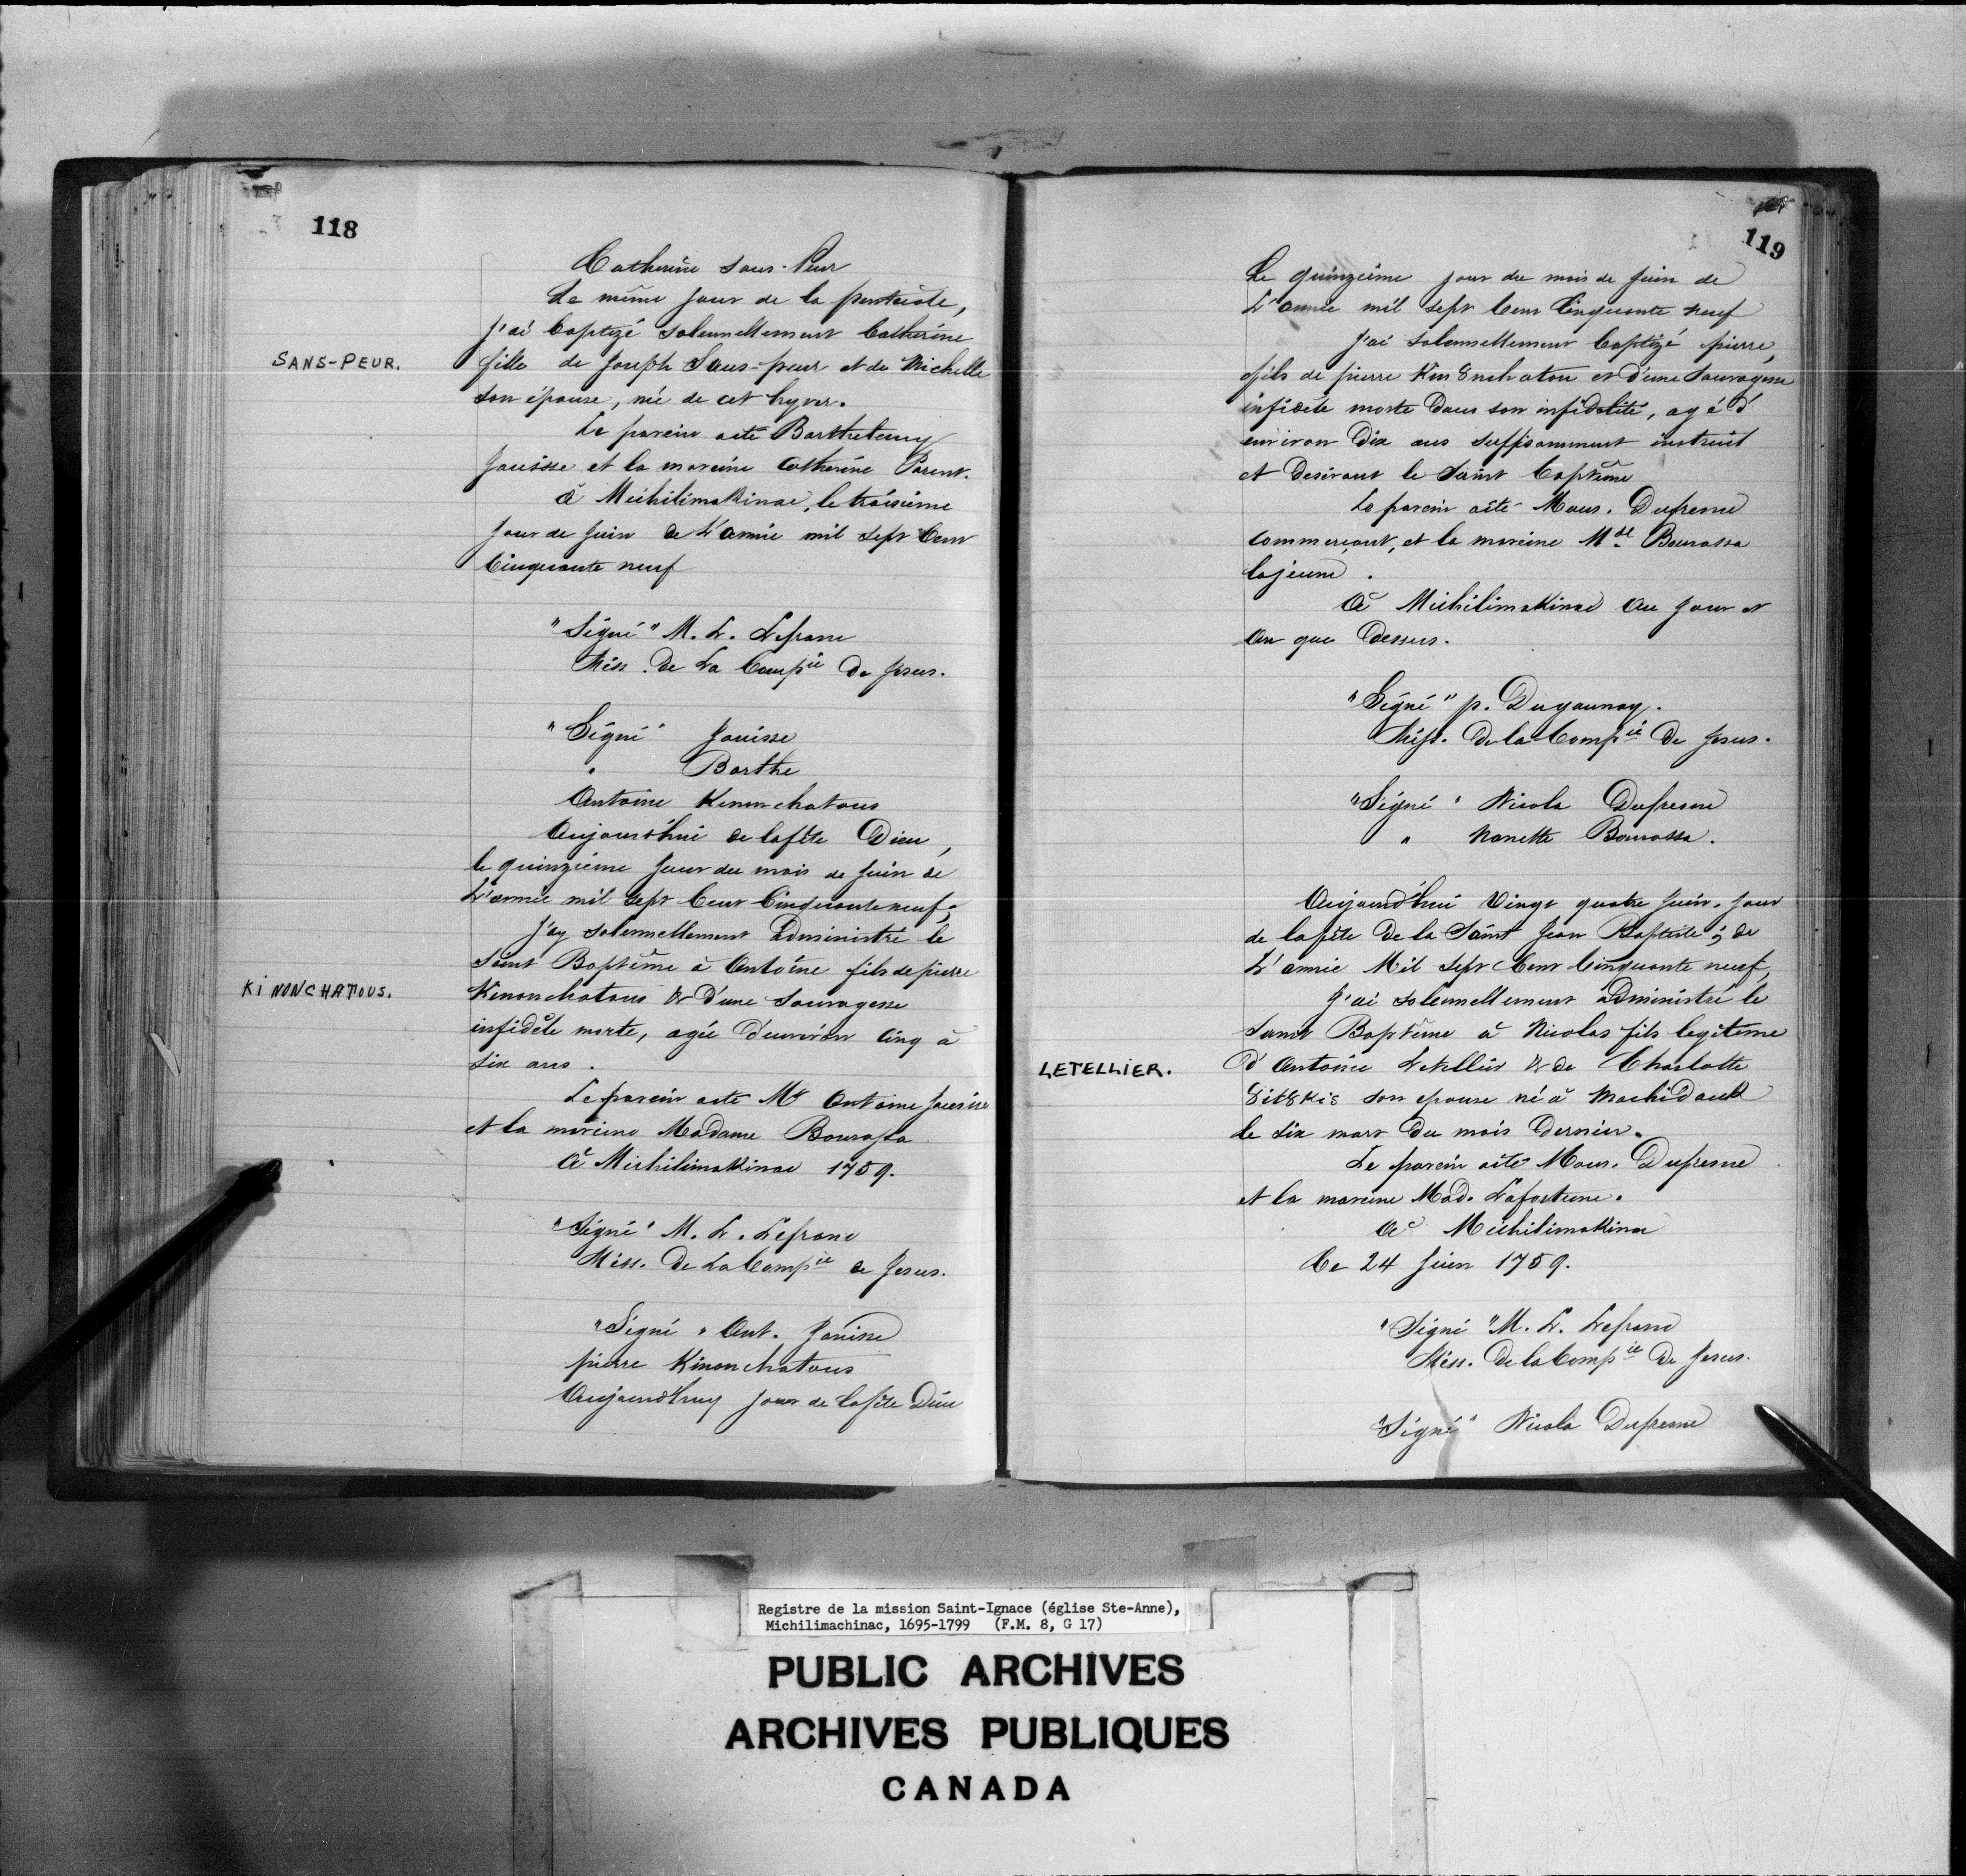 118
Catherine Sans-Peur
Le même jour de la pentecôte,
j'ai baptizé solennellement Catherine
SANS-PEUR.
fille de Joseph Sans-peur et de Michelle
son épouse, née de cet hyver.
Le parein a été Barthelemy
Jouisse et la mareine Catherine Parent.
à Michilimakinac, le troisième
jour de juin de L'année mil sept Cent
Cinquante neuf
"Signé" M. L. Lefranc
Miss. de La Comp.ie de Jesus.
"Signé" Jouisse
" Barthe
Antoine Kinonchatous
Aujourd'hui de la fête Dieu,
le quinzième jour du mois de juin de
L'année mil sept Cent Cinquante neuf;
j'ay solennellement administré le
Saint Baptême à Antoine fils de pierre
KINONCHATOUS.
Kinonchatous & d'une Sauvagesse
infidèle morte, agée d'environ cinq à
six ans.
Le parein a été Mr Antoine Jouisse
et la mareine Madame Bourassa
à Michilimakinac 1759.
"Signé" M. L. Lefranc
Miss. De La Comp.ie de Jesus.
"Signé" Ant. Jouisse
pierre Kinonchatous
Aujourd'huy jour de la fête Dieu
119
Le quinzième jour du mois de juin de
L'année mil sept Cent Cinquante neuf
j'ai solennellement baptizé pierre,
fils de pierre Kin8nchaton et d'une Sauvagesse
infidèle morte Dans son infidelité, agé d'
environ Dix ans suffisamment instruit
et Desirant le Saint baptême
Le parein a été Mons. Dufresne
Commerçant, et la mareine Mde Bourassa
la jeune.
à Michilimakinac au jour et
an que Dessus.
"Signé" p. Dugaunay.
Miss. De la Comp.ie De Jesus.
"Signé" Nicola Dufresne
" Nanette Bourassa.
Aujourd'hui Vingt quatre juin, jour
de la fête De la Saint Jean Baptiste; de
L'année Mil sept Cent Cinquante neuf,
j'ai solennellement administré le
Saint Baptême à Nicolas fils legitime
LETELLIER.
D'Antoine Letellier & de Charlotte
8it8kis son epouse né à Machidauk
le six mars Du mois Dernier.
Le parein a été Mons. Dufresne
et la mareine Mad. Lafortune.
à Michilimakinac
Ce 24 juin 1759.
"Signé" M. L. Lefranc
Miss. De la Comp.ie De Jesus.
"Signé" Nicola Dufresne
Registre de la mission Saint-Ignace (église Ste-Anne),
Michilimachinac, 1695-1799 (F.M. 8, G 17)
PUBLIC ARCHIVES
ARCHIVES PUBLIQUES
CANADA